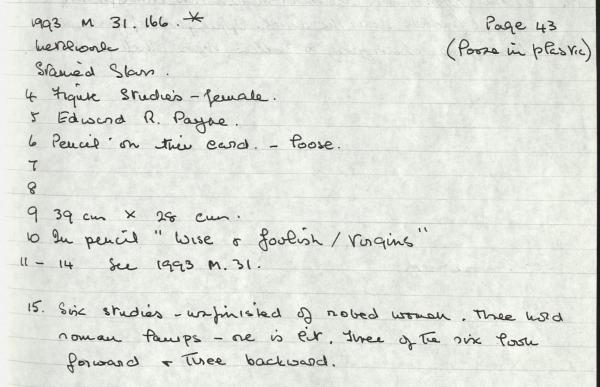 1993 M. 31. 166. *
Page 43
(loose in plastic)
Stained Glass.
4 Figure Studies - female.
5 Edward R. Payne.
6 Pencil on thin card. - loose.
7
8
9 39 cm × 28 cm.
10 In pencil "Wise & foolish / Virgins"
11 - 14 See 1993 M. 31.
15. Six studies - unfinished of robed women. Three hold
roman lamps - one is lit. Three of the six look
forward & three backward.